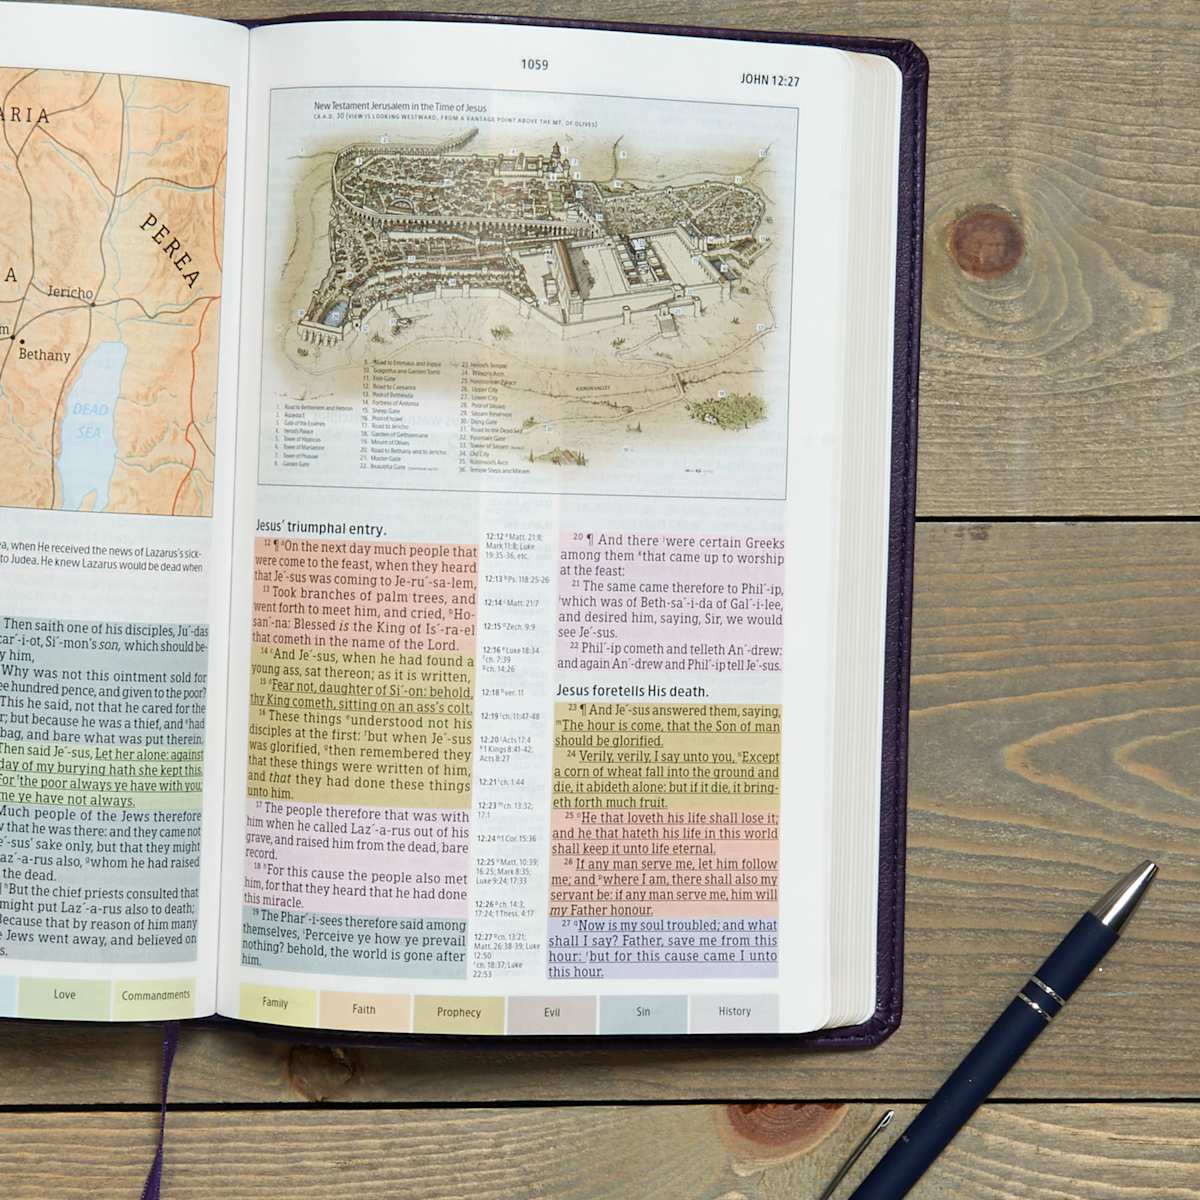 ARIA
PEREA
A
Jericho
Bethany
DEAD
SEA
ea, when He received the news of Lazarus's sick-
to Judea. He knew Lazarus would be dead when
Then saith one of his disciples, Ju´-das
car´-i-ot, Si´-mon's son, which should be-
y him,
Why was not this ointment sold for
ee hundred pence, and given to the poor?
This he said, not that he cared for the
r; but because he was a thief, and ᵍhad
bag, and bare what was put therein.
Then said Je´-sus, Let her alone: against
day of my burying hath she kept this.
For ᶠthe poor always ye have with you;
me ye have not always.
Much people of the Jews therefore
v that he was there: and they came not
e´-sus' sake only, but that they might
az´-a-rus also, ᵍwhom he had raised
the dead.
¶ ʰBut the chief priests consulted that
might put Laz´-a-rus also to death;
Because that by reason of him many
e Jews went away, and believed on
s.
Love
Commandments
1059
JOHN 12:27
New Testament Jerusalem in the Time of Jesus
CA A.D. 30 (VIEW IS LOOKING WESTWARD, FROM A VANTAGE POINT ABOVE THE MT. OF OLIVES)
KIDRON VALLEY
1. Road to Bethlehem and Hebron
3. Gate of the Essenes
4. Herod's Palace
5. Tower of Hippicus
6. Tower of Mariamne
7. Tower of Phasael
8. Garden Gate
9. Road to Emmaus and Joppa
10. Golgotha and Garden Tomb
11. Fish Gate
12. Road to Caesarea
13. Pool of Bethesda
14. Fortress of Antonia
15. Sheep Gate
16. Pool of Israel
17. Road to Jericho
18. Garden of Gethsemane
19. Mount of Olives
20. Road to Bethany and to Jericho
21. Muster Gate
22. Beautiful Gate
23. Herod's Temple
24. Wilson's Arch
25. Hasmonean Palace
26. Upper City
27. Lower City
28. Pool of Siloam
29. Siloam Reservoir
30. Dung Gate
31. Road to the Dead Sea
32. Fountain Gate
33. Tower of Siloam
34. Old City
35. Robinson's Arch
36. Temple Steps and
Jesus' triumphal entry.
12 ¶ ᵃOn the next day much people that
were come to the feast, when they heard
that Je´-sus was coming to Je-ru´-sa-lem,
13 Took branches of palm trees, and
went forth to meet him, and cried, ᵇHo-
san´-na: Blessed is the King of Is´-ra-el
that cometh in the name of the Lord.
14 ᶜAnd Je´-sus, when he had found a
young ass, sat thereon; as it is written,
15 ᵈFear not, daughter of Si´-on: behold,
thy King cometh, sitting on an ass's colt.
16 These things ᵉunderstood not his
disciples at the first: ᶠbut when Je´-sus
was glorified, ᵍthen remembered they
that these things were written of him,
and that they had done these things
unto him.
17 The people therefore that was with
him when he called Laz´-a-rus out of his
grave, and raised him from the dead, bare
record.
18 ʰFor this cause the people also met
him, for that they heard that he had done
this miracle.
19 The Phar´-i-sees therefore said among
themselves, ⁱPerceive ye how ye prevail
nothing? behold, the world is gone after
him.
12:12 ᵃMatt. 21:8;
Mark 11:8; Luke
19:35-36, etc.
12:13 ᵇPs. 118:25-26
12:14 ᶜMatt. 21:7
12:15 ᵈZech. 9:9
12:16 ᵉLuke 18:34
ᶠch. 7:39
ᵍch. 14:26
12:18 ʰver. 11
12:19 ⁱch. 11:47-48
12:20 ʲActs 17:4
ᵏ1 Kings 8:41-42;
Acts 8:27
12:21 ˡch. 1:44
12:23 ᵐch. 13:32;
17:1
12:24 ⁿ1 Cor. 15:36
12:25 ᵒMatt. 10:39;
16:25; Mark 8:35;
Luke 9:24; 17:33
12:26 ᵖch. 14:3;
17:24; 1 Thess. 4:17
12:27 qch. 13:21;
Matt. 26:38-39; Luke
12:50
ʳch. 18:37; Luke
22:53
20 ¶ And there ʲwere certain Greeks
among them ᵏthat came up to worship
at the feast:
21 The same came therefore to Phil´-ip,
ˡwhich was of Beth-sa´-i-da of Gal´-i-lee,
and desired him, saying, Sir, we would
see Je´-sus.
22 Phil´-ip cometh and telleth An´-drew:
and again An´-drew and Phil´-ip tell Je´-sus.
Jesus foretells His death.
23 ¶ And Je´-sus answered them, saying,
ᵐThe hour is come, that the Son of man
should be glorified.
24 Verily, verily, I say unto you, ⁿExcept
a corn of wheat fall into the ground and
die, it abideth alone: but if it die, it bring-
eth forth much fruit.
25 ᵒHe that loveth his life shall lose it;
and he that hateth his life in this world
shall keep it unto life eternal.
26 If any man serve me, let him follow
me; and ᵖwhere I am, there shall also my
servant be: if any man serve me, him will
my Father honour.
27 qNow is my soul troubled; and what
shall I say? Father, save me from this
hour: ʳbut for this cause came I unto
this hour.
Family
Faith
Prophecy
Evil
Sin
History